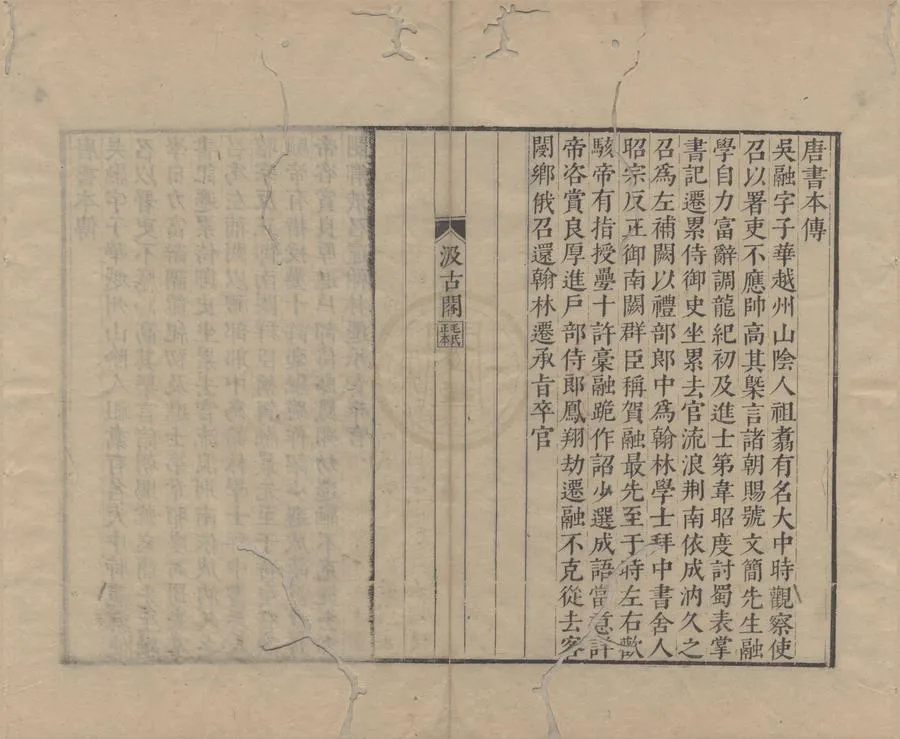 唐書本傳
吳融字子華越州山陰人祖翥有名大中時觀察使
召以署吏不應帥高其槩言諸朝賜號文簡先生融
學自力富辭調龍紀初及進士第韋昭度討蜀表掌
書記遷累侍御史坐累去官流浪荆南依成汭久之
召爲左補闕以禮部郎中爲翰林學士拜中書舍人
昭宗反正御南闕群臣稱賀融最先至于時左右歡
駭帝有指授疊十許稾融跪作詔少選成語當意詳
帝咨賞良厚進戶部侍郎鳳翔劫遷融不克從去客
閿鄉俄召還翰林遷承旨卒官
汲古閣
毛氏
正本